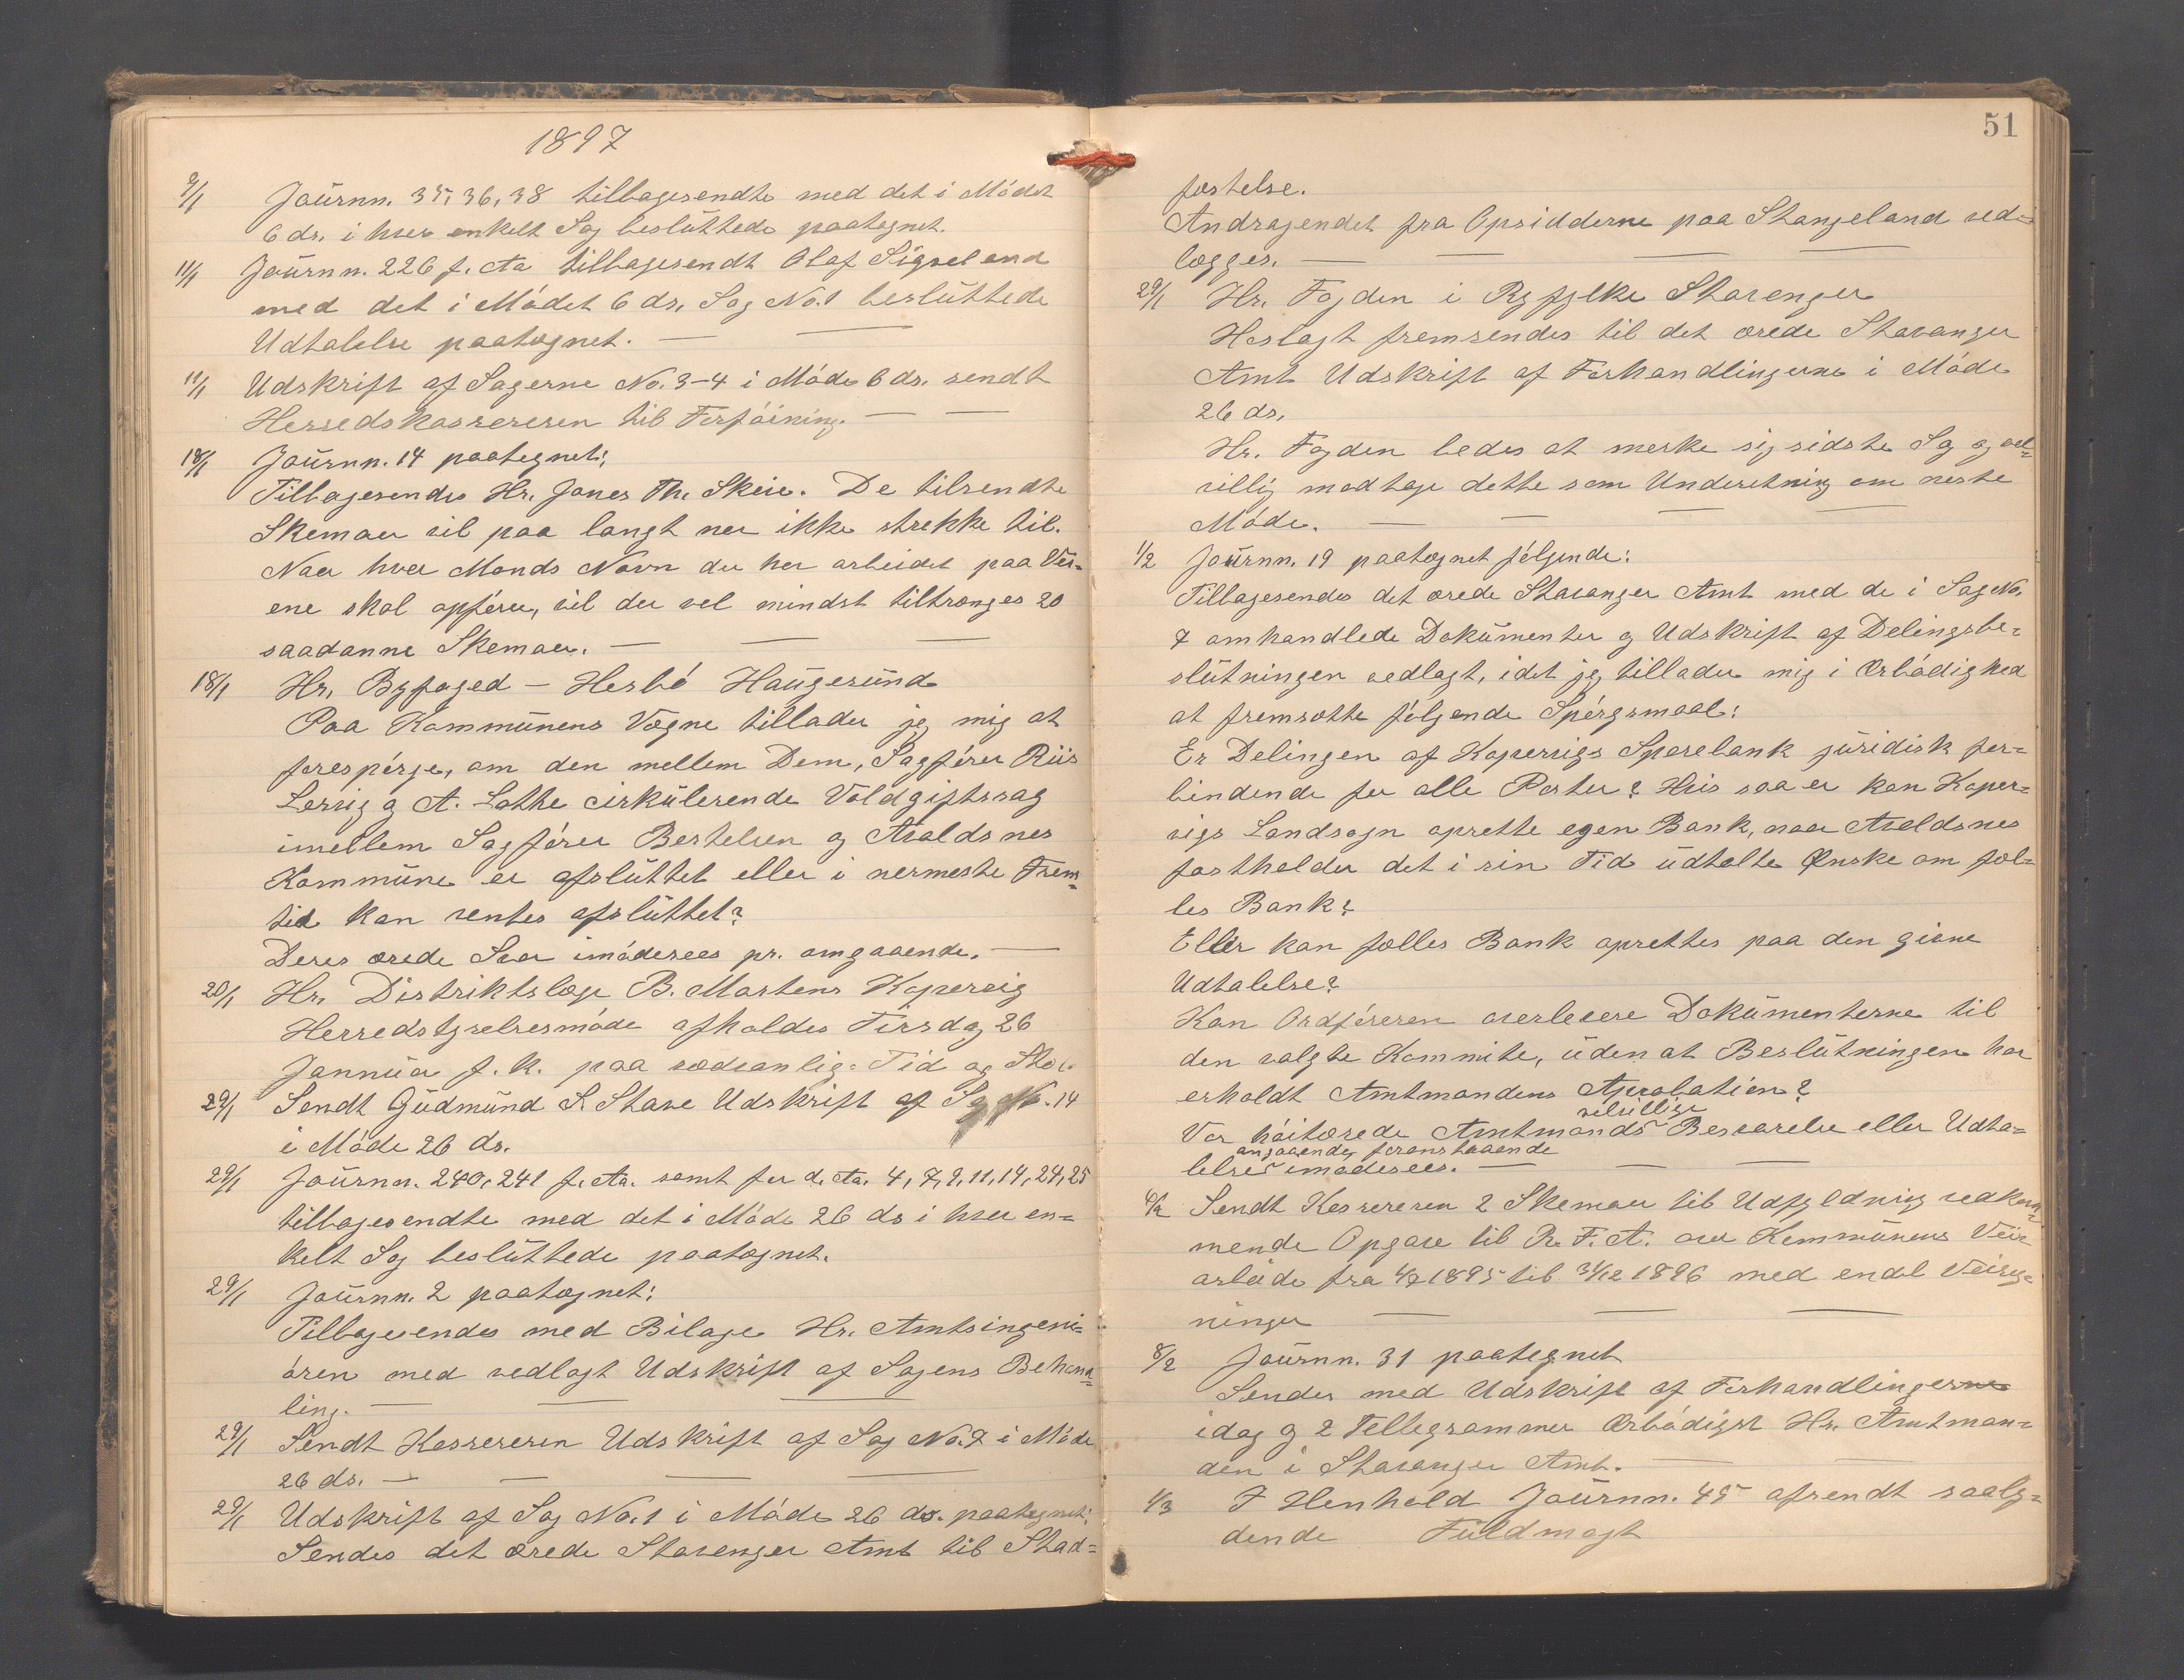 1897
9/1 Journn. 35, 36, 38 tilbagesendte med det i Mödet
6 ds. i hver enkelt Sag besluttede paategnet.
11/1 Journn. 226 f. Aa tilbagesendt Olaf Sigveland
med det i Mödet 6 ds. Sag No. 1 besluttede
Udtalelse paategnet. —
11/1 Udskrift af Sagerne No. 3-4 i Möde 6 ds. sendt
Herredskassereren til Forföining. — —
18/1 Journn. 14 paategnet:
Tilbagesendes Hr. Jones Th. Skeie. De tilsendte
Skemaer vil paa langt nær ikke strekke til.
Naar hver Mands Navn der har arbeidet paa Vei=
ene skal opföres, vil der vel mindst tiltrænges 20
saadanne Skemaer. — — —
18/1 Hr. Byfoged - Hesbö Haugesund
Paa Kommunens Vægne tillader jeg mig at
forespörge, om den mellem Dem, Sagförer Riis
Lervig og A. Lothe cirkulerende Voldgiftssag
imellem Sagförer Bertelsen og Avaldsnes
Kommune er afsluttet eller i nermeste Frem=
tid kan ventes afsluttet?
Deres ærede Svar imödesees pr. omgaaende. —
20/1 Hr. Distriktslæge B. Martens Kopervig
Herredstyrelsesmöde afholdes Tirsdag 26
Januar f. k. paa sædvanlig Tid og Sted.
29/1 Sendt Gudmund S. Stave Udskrift af Sag No. 14
i Möde 26 ds.
29/1 Journn. 240, 241 f. Aa. samt for d. Aa. 4, 7, 9, 11, 14, 24, 25
tilbagesendte med det i Möde 26 ds i hver en=
kelt Sag besluttede paategnet.
29/1 Journn. 2 paategnet:
Tilbagesendes med Bilage Hr. Amtsingeni=
ören med vedlagt Udskrift af Sagens Behand=
ling. — — —
29/1 Sendt Kassereren Udskrift af Sag No. 7 i Möde
26 ds. — — — —
29/1 Udskrift af Sag No. 1 i Möde 26 ds. paategnet:
Sendes det ærede Stavanger Amt til Stad=
51
fæstelse.
Andragendet fra Opsidderne paa Stangeland ved=
lægges. — — — —
29/1 Hr. Fogden i Ryfylke Stavanger
Heslagt fremsendes til det ærede Stavanger
Amt Udskrift af Forhandlingerne i Möde
26 ds.
Hr. Fogden bedes at merke sig sidste Sag og vel=
villig modtage dette som Underetning om neste
Möde. — — — —
1/2 Journn. 19 paategnet fölgende:
Tilbagesendes det ærede Stavanger Amt med de i Sag No.
7 omhandlede Dokumenter og Udskrift af Delingsbe=
slutningen vedlagt, idet jeg tillader mig i Ærbödighed
at fremsætte fölgende Spörgsmaal:
Er Delingen af Kopervigs Sparebank juridisk for=
bindende for alle Parter? Hvis saa er kan Koper=
vigs Landsogn oprette egen Bank, naar Avaldsnes
fastholder det i sin Tid udtalte Ønske om fæl=
les Bank?
Eller kan fælles Bank oprettes paa den givne
Udtalelse?
Kan Ordföreren overlevere Dokumenterne til
den valgte Kommite, uden at Beslutningen har
erholdt Amtmandens Aprobation?
velvillige
Vor höitærede Amtmands Besvarelse eller Udta=
angaaende foranstaaende
lelse imödesees. — — —
6/2 Sendt Kassereren 2 Skemaer til Udfyldning vedkom=
mende Opgave til R. F. A. over Kommunens Vei=
arbeide fra 1/7 1895 til 31/12 1896 med endel Veireg=
ninger — — —
8/2 Journn. 31 paategnet
Sendes med Udskrift af Forhandlingerne
idag og 2 Tellegrammer Ærbödigst Hr. Amtman=
den i Stavanger Amt. — —
1/3 I Henhold Journn. 45 afsendt saaly=
dende Fuldmagt